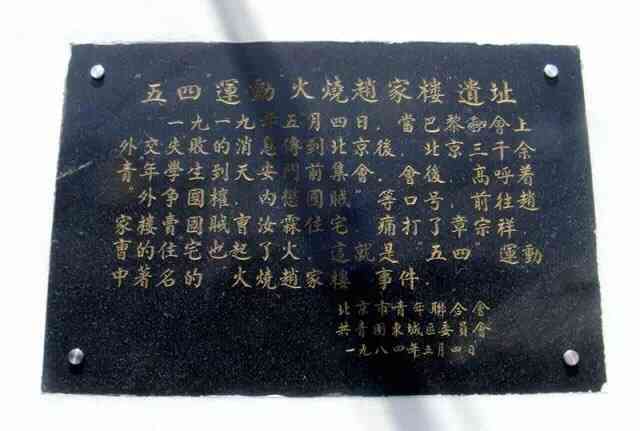 五四運動火燒趙家樓遺址
一九一九年五月四日，當巴黎和會上
外交失敗的消息傳到北京後，北京三千余
青年學生到天安門前集會，會後，高呼着
“外争國權，内懲國賊”等口号，前往趙
家樓賣國賊曹汝霖住宅，痛打了章宗祥，
曹的住宅也起了火，這就是“五四”運動
中著名的“火燒趙家樓”事件．
北京市青年聯合會
共青團東城區委員會
一九八四年五月四日